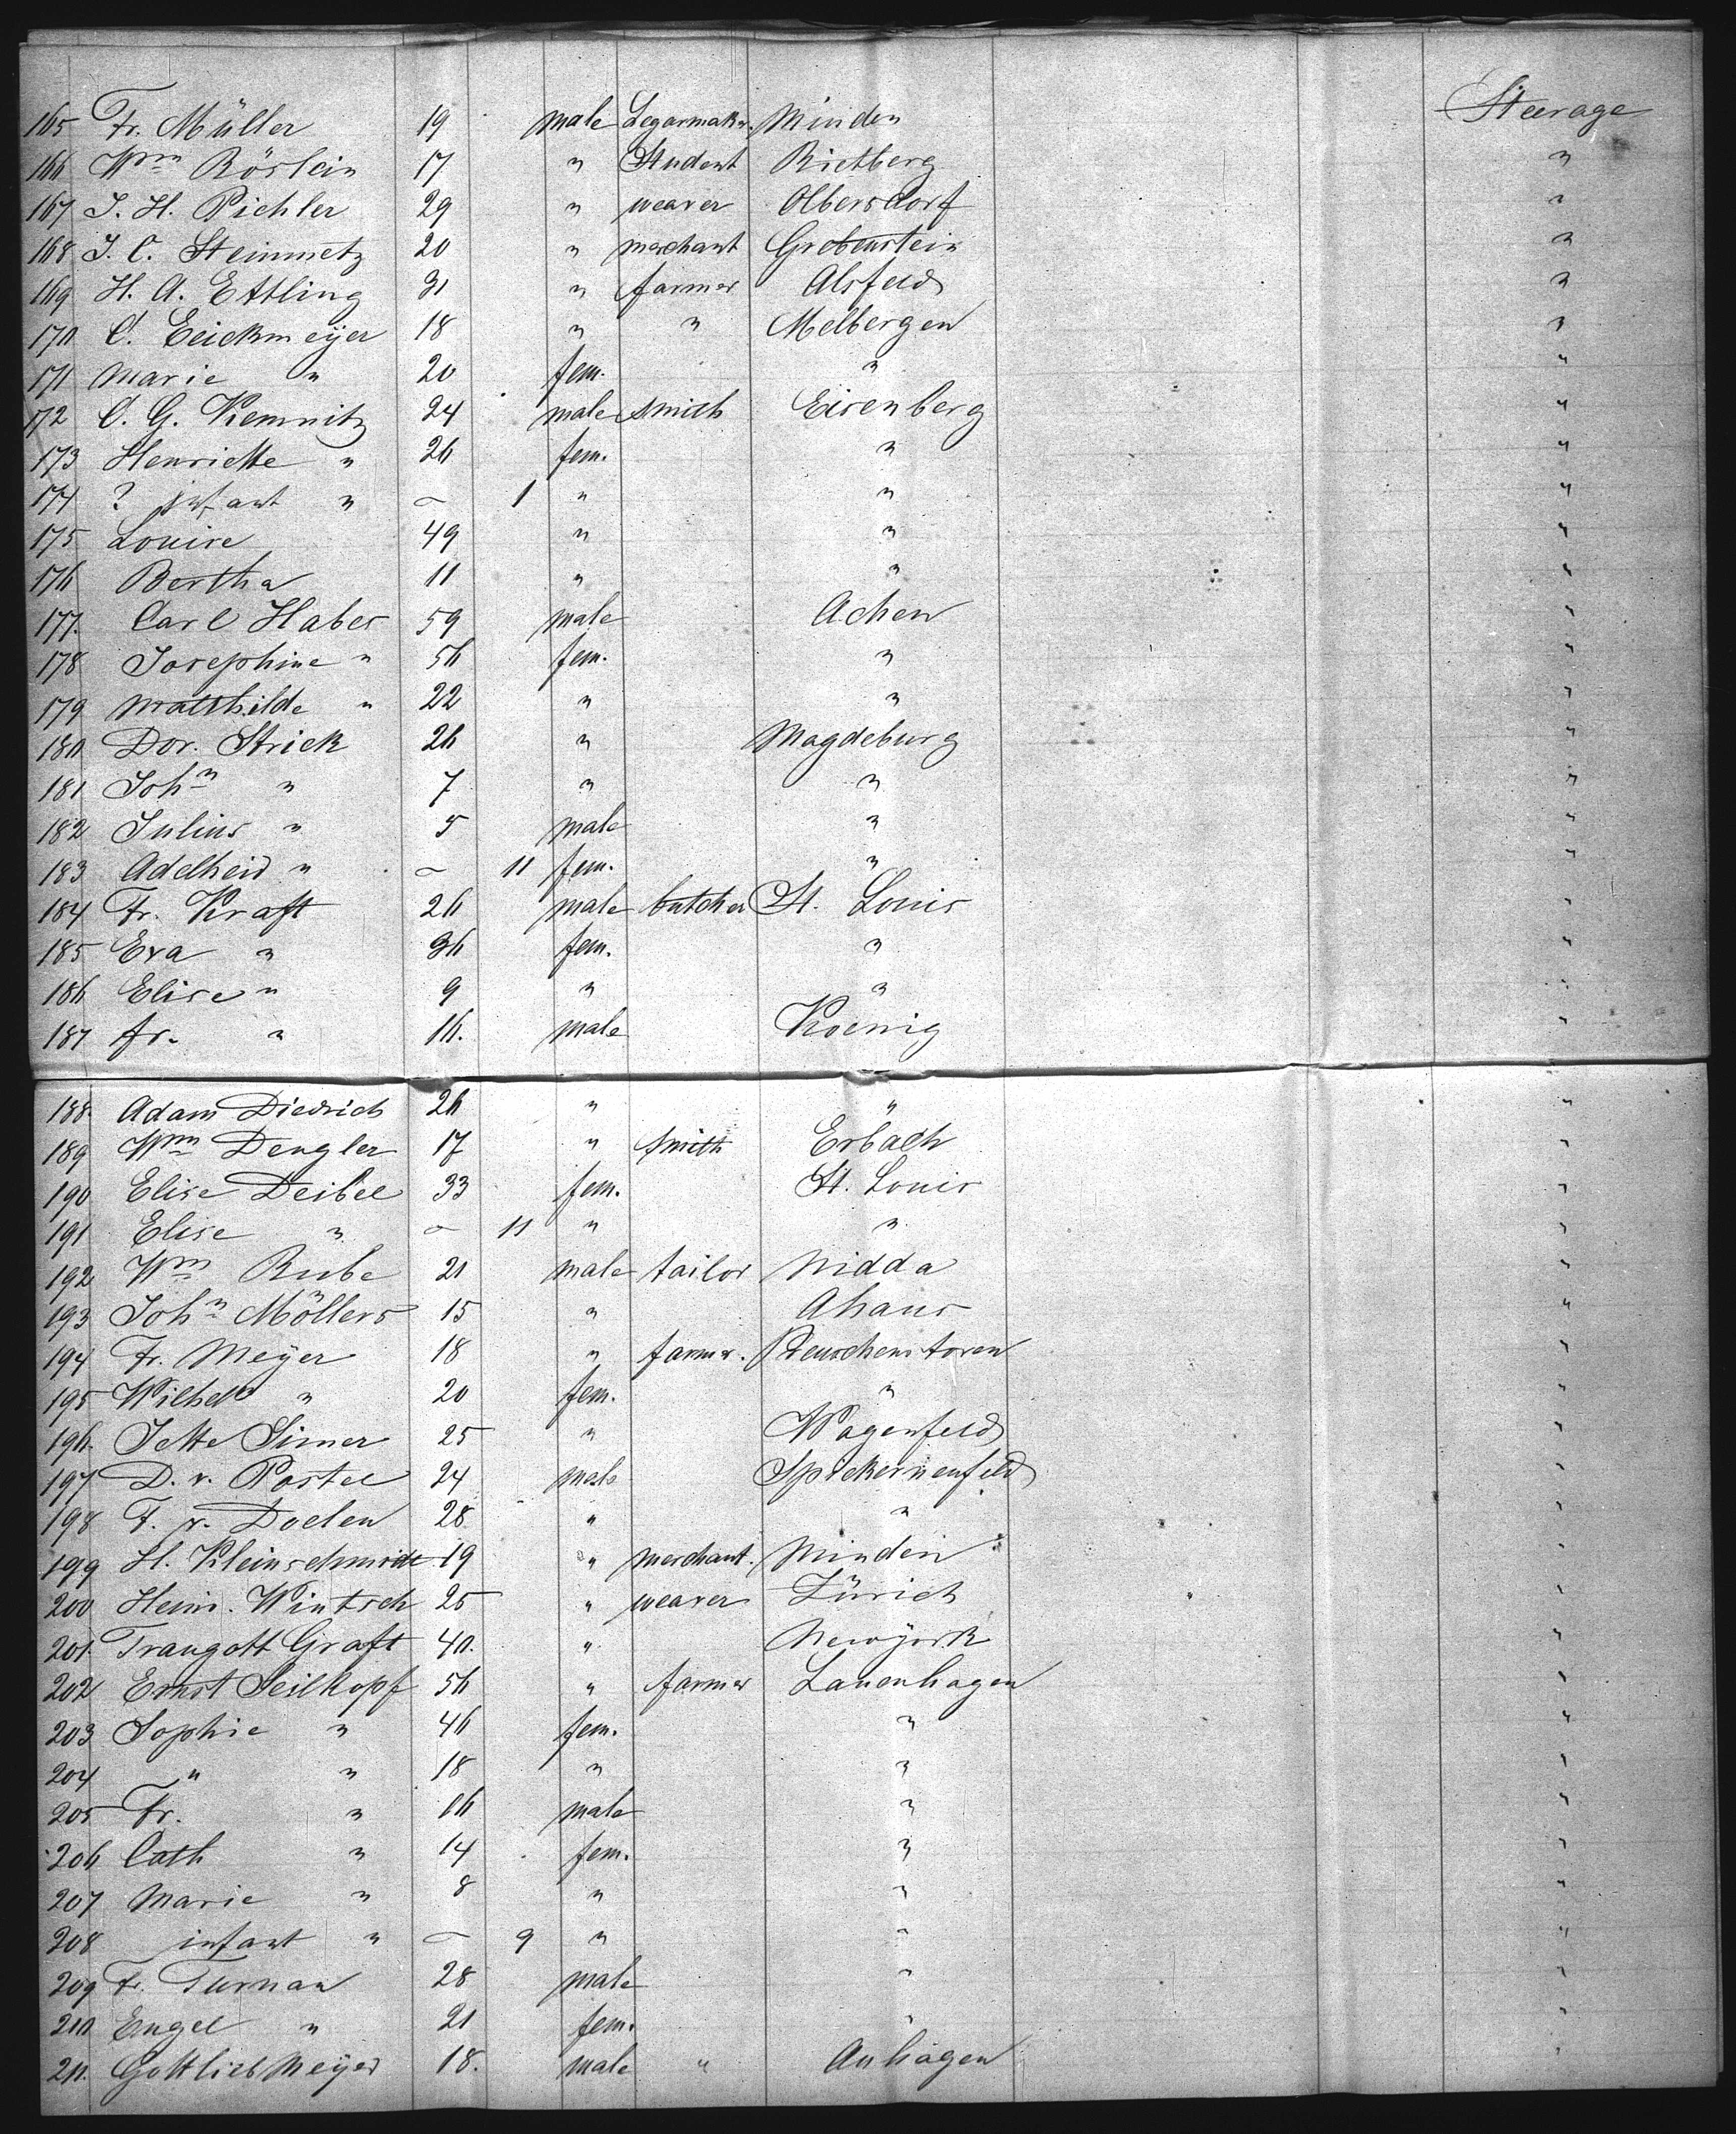 165 Fr. Müller 19 male Segarmakr. Minden Steerage
166 Wm Röslein 17 " Student Rietberg "
167 J. H. Pichler 29 " weaver Olbersdorf "
168 J. C. Steinmetz 20 " merchant Grebenstein "
169 H. A. Ettling 31 " farmer Alsfeld "
170 C. Eeickmeÿer 18 " " Melbergen "
171 Marie " 20 fem. " "
172 C. G. Kemnitz 24 male smith Eisenberg "
173 Henriette " 26 fem. " "
174 ? infant " – 1 " " "
175 Louise 49 " " "
176 Bertha 11 " " "
177. Carl Haber 59 male Achen "
178 Josephine " 56 fem. " "
179 Matthilde " 22 " " "
180 Dor. Strick 26 " Magdeburg "
181 John " 7 " " "
182 Julius " 5 male " "
183 Adelheid " – 11 fem. " "
184 Fr. Kraft 26 male butcher St. Louis "
185 Eva " 36 fem. " "
186 Elise " 9 " " "
187 Fr. " 16. male Koenig "
188. Adam Diedrich 26 " " "
189 Wm Dengler 17 " smith Erbach "
190 Elise Deibel 33 fem. St. Louis "
191 Elise " – 11 " " "
192 Wm Rube 21 male tailor Nidda "
193 John Möllers 15 " Ahaus "
194 Fr. Meÿer 18 " farmr. "
195 Wilhel " 20 fem. " "
196. Jette Simer 25 " Wagenfeld "
197 D. v. Postel 24 male "
198 F. v. Doelen 28 " " "
199 H. Kleinschmidt 19 " merchant. Minden "
200 Heinr. Wintsch 25 " weaver Zürich "
201. Traugott Graft 40. " Newÿork "
202 Ernst Seilkopf 56 " farmer Lauenhagen "
203 Sophie " 46 fem. " "
204 " " 18 " " "
205 Fr. " 16 male " "
206 Cath " 14 fem. " "
207 Marie " 8 " " "
208 infant " – 9 " " "
209 Fr. Turnau 28 male " "
210 Engel " 21 fem. " "
211. Gottlieb Meÿer 18. male " Auhagen "